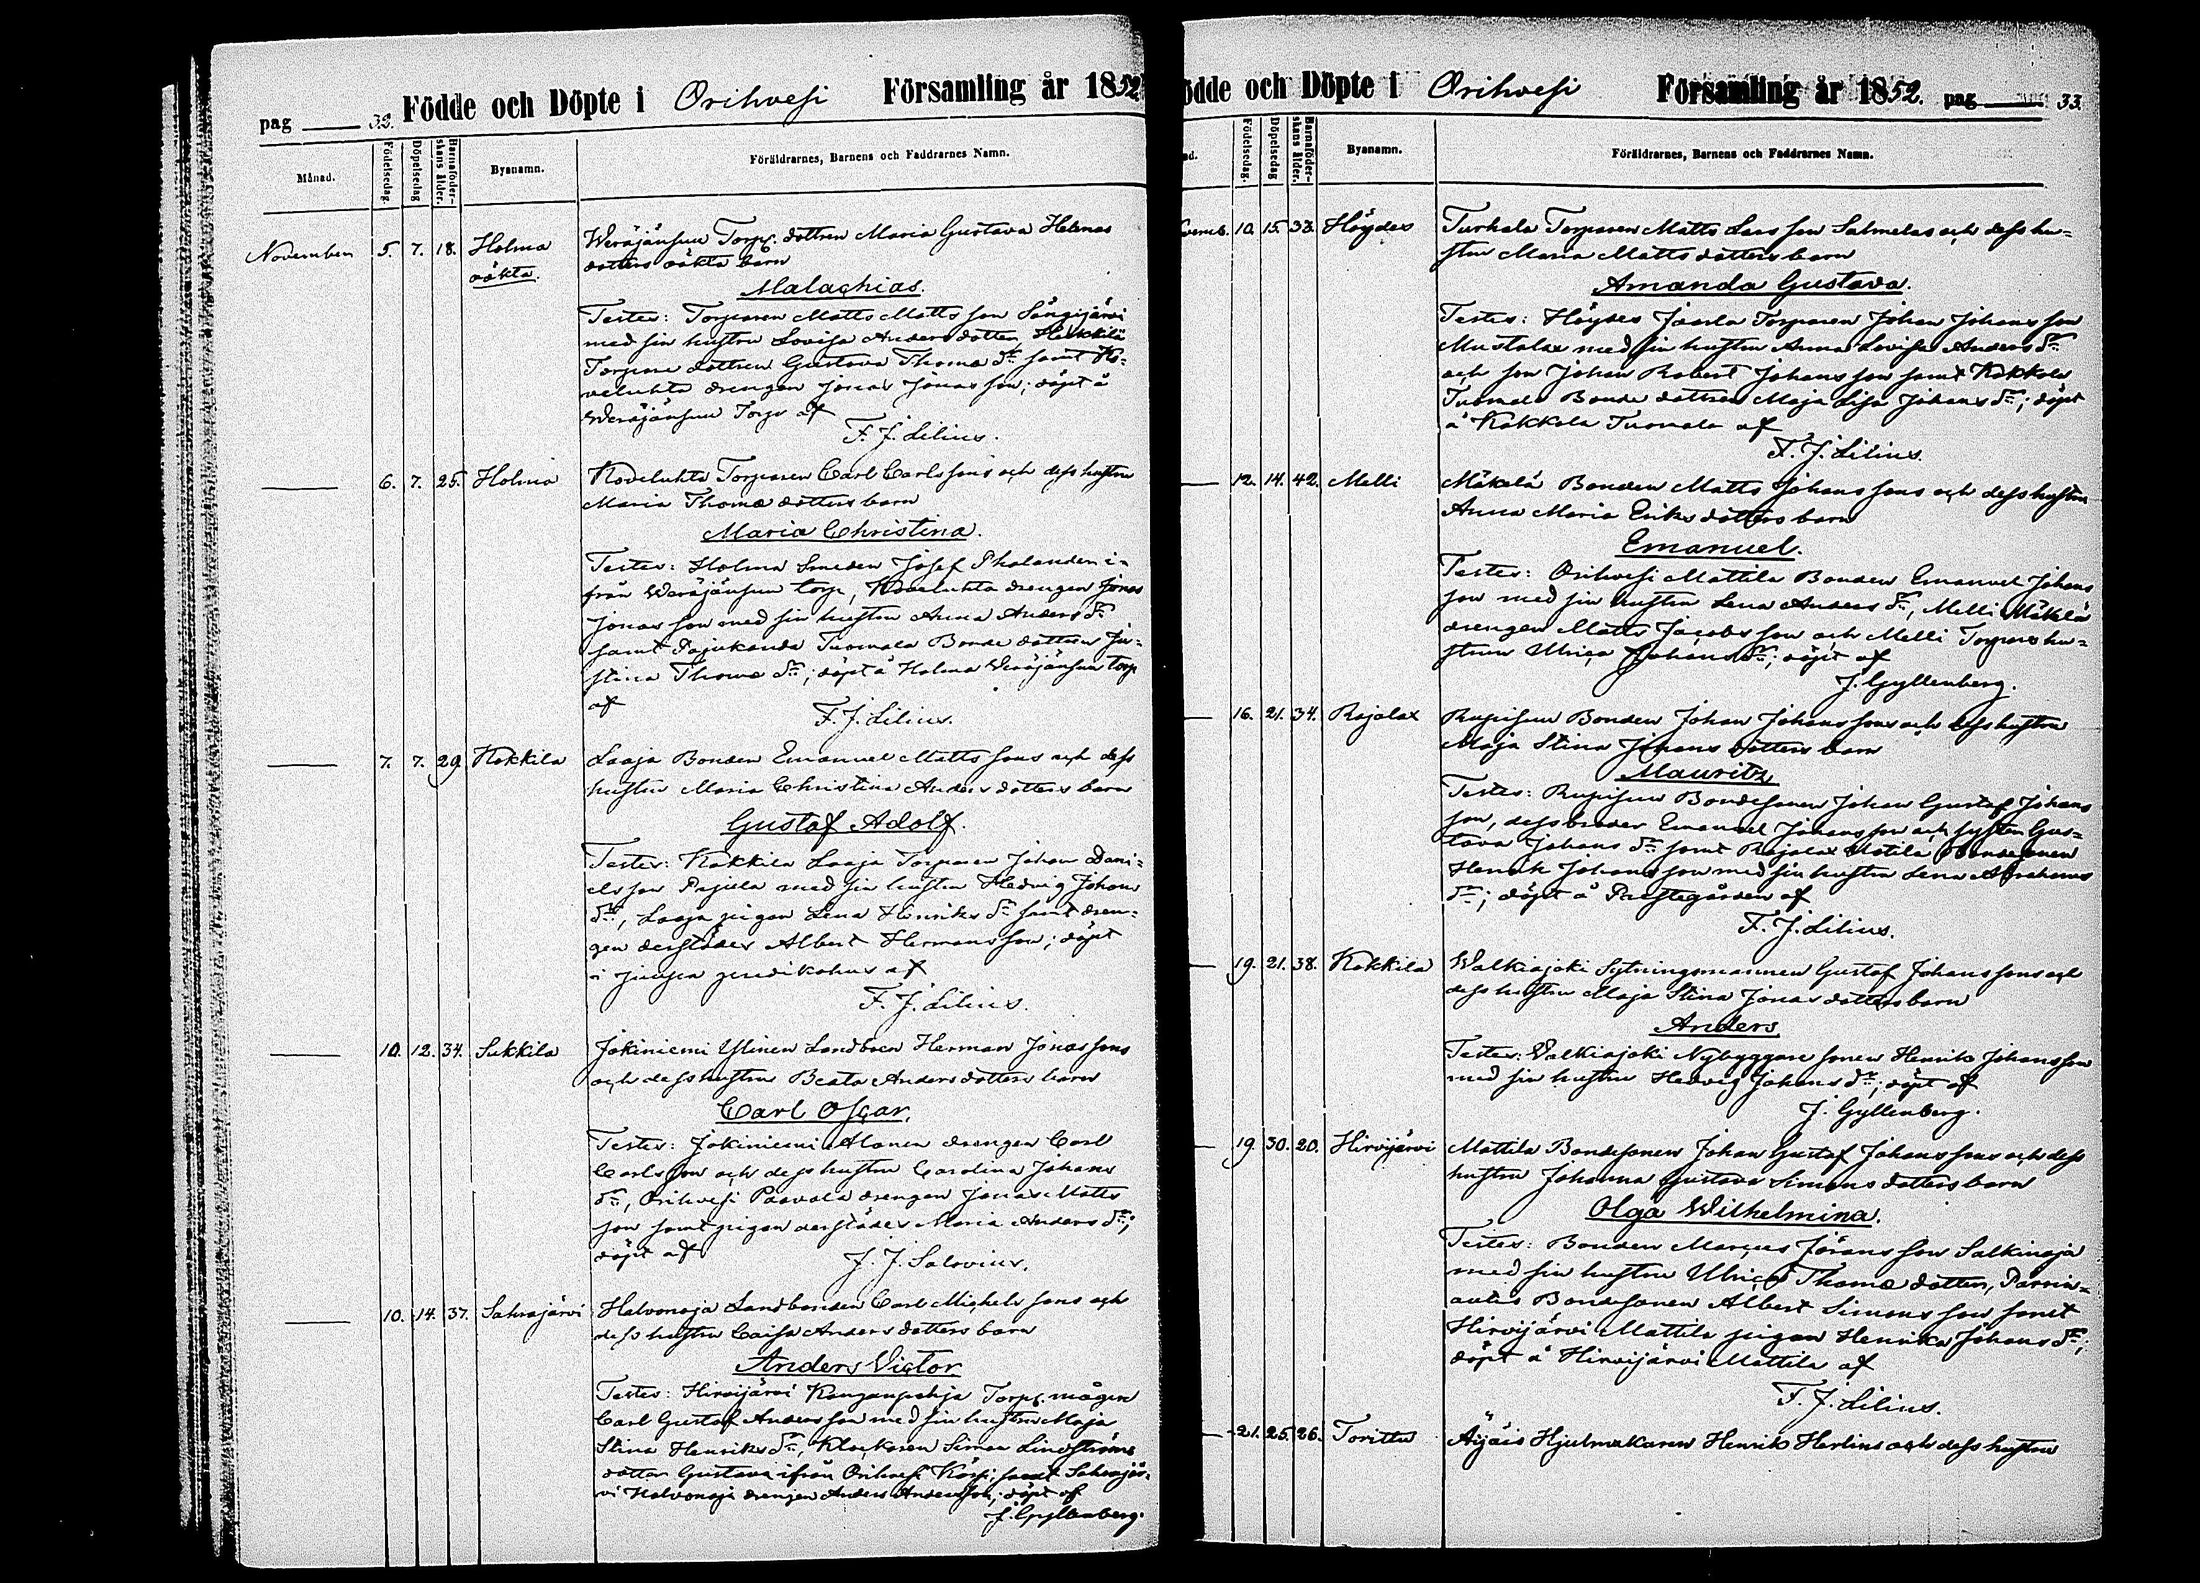 pag 32. Födde och Döpte i Orihvesi Församling år 1852
Månad. Födelsedag. Döpelsedag Barnaföder-skans ålder. Byanamn. Föräldrarnes, Barnens och Faddrarnes Namn.
November 5. 7. 18. Holma oäkta. Weräjänsuu Torp. dottren Maria Gustava Helenas
dotters oäkta barn
Malachias.
Testes: Torparen Matts Matts son Längijärvi
med sin hustru Lovisa Anders dotter, Heikkilä
Torpare dottren Gustava Thomæ dr samt Ko-
veluhta drengen Jonas Jonas son; döpt å
Weräjänsuu Torp af
F. J. Lilius.
6. 7. 25. Holma Koveluhta Torparen Carl Carls sons och dess hustru
Maria Thomæ dotters barn
Maria Christina.
Testes: Holma Smeden Josef Thalenden i-
från Weräjänsuu torp, Koveluhta drengen Jonas
Jonas son med sin hustru Anna Anders dr
samt Pajukanda Tuomala Bonde dottren Ju-
stina Thomæ dr; döpt å Holma Weräjänsuu torp
af
F. J. Lilius.
7. 7. 29 Kokkila Laaja Bonden Emanuel Matts sons och dess
hustru Maria Christina Anders dotters barn
Gustaf Adolf.
Testes: Kokkila Laaja Torparen Johan Dani-
els son Pajula med sin hustru Hedvig Johans
dr, Laaja pigan Lena Henriks dr samt dren-
gen derstädes Albert Hermans son; döpt
i Juupa predikohus af
F. J. Lilius.
10. 12. 34. Sukkila Jokiniemi Ylinen Landboen Herman Jonas sons
och dess hustru Beata Anders dotters barn
Carl Oscar.
Testes: Jokiniemi Alanen drengen Carl
Carls son och dess hustru Carolina Johans
dr, Orihvesi Paavola drengen Jonas Matts
son samt pigan derstädes Maria Anders dr;
döpt af
J. J. Salovius.
10. 14. 37. Sahrajärvi Halvonoja Landbonden Carl Michels sons och
dess hustru Caisa Anders dotters barn
Anders Victor
Testes: Hirvijärvi Kangaspohja Torp. mågen
Carl Gustaf Anders son med sin hustru Maja
Stina Henriks dr, Klockaren Simon Lindströms
dotter Gustava ifrån Orihvesi Körpi, samt Sahrajär-
vi Halvonoja drengen Anders Anders son; döpt af
J. Gyllenberg.
Födde och Döpte i Orihvesi Församling år 1852. pag 33.
Födelsedag. Döpelsedag Barnaföder-skans ålder. Byanamn. Föräldrarnes, Barnens och Faddrarnes Namn.
Novemb. 10. 15. 33. Höydes Turkala Torparen Matts Lars son Salmelas och dess hu-
stru Maria Matts dotters barn
Amanda Gustava.
Testes: Höydes Jaarla Torparen Johan Johans son
Mustalax med sin hustru Anna Lovisa Anders dr
och son Johan Robert Johans son samt Kokkola
Tuomala Bonde dottren Maja Lisa Johans dr; döpt
å Kokkola Tuomala af
F. J. Lilius.
12. 14. 42. Melli Mäkelä Bonden Matts Johans sons och dess hustru
Anna Maria Eriks dotters barn
Emanuel.
Testes: Orihvesi Mattila Bonden Emanuel Johans
son med sin hustru Lena Anders dr, Melli Mäkelä
drengen Matts Jacobs son och Melli Torpare hu-
strun Ulrica Johans dr; döpt af
J. Gyllenberg.
16. 21. 34. Rajalax Rupisuu Bonden Johan Johans sons och dess hustru
Maja Stina Johans dotters barn
Mauritz
Testes: Rupisuu Bondesonen Johan Gustaf Johans
son, dess broder Emanuel Johans son och syster Gus-
tava Johans dr samt Rajalax Uotila Bondesonen
Henrik Johans son med sin hustru Lena Abrahams
dr; döpt å Prestegården af
F. J. Lilius.
19. 21. 38. Kokkila Walkiajoki Sytningsmannen Gustaf Johans sons och
dess hustru Maja Stina Jonas dotters barn
Anders
Testes: Walkiajoki Nybyggare sonen Henrik Johans son
med sin hustru Hedvig Johans dr; döpt af
J. Gyllenberg.
19. 30. 20. Hirvijärvi Mattila Bondesonen Johan Gustaf Johans sons och dess
hustru Johanna Gustava Simons dotters barn
Olga Wilhelmina.
Testes: Bonden Marcus Jörans son Salkinoja
med sin hustru Ulrica Thomæ dotter, Parvin-
autis Bondesonen Albert Simons son samt
Hirvijärvi Mattila pigan Henrika Johans dr;
döpt å Hirvijärvi Mattila af
F. J. Lilius.
21. 25. 26. Torittu Äijäis Hjulmakaren Henrik Herlins och dess hustru